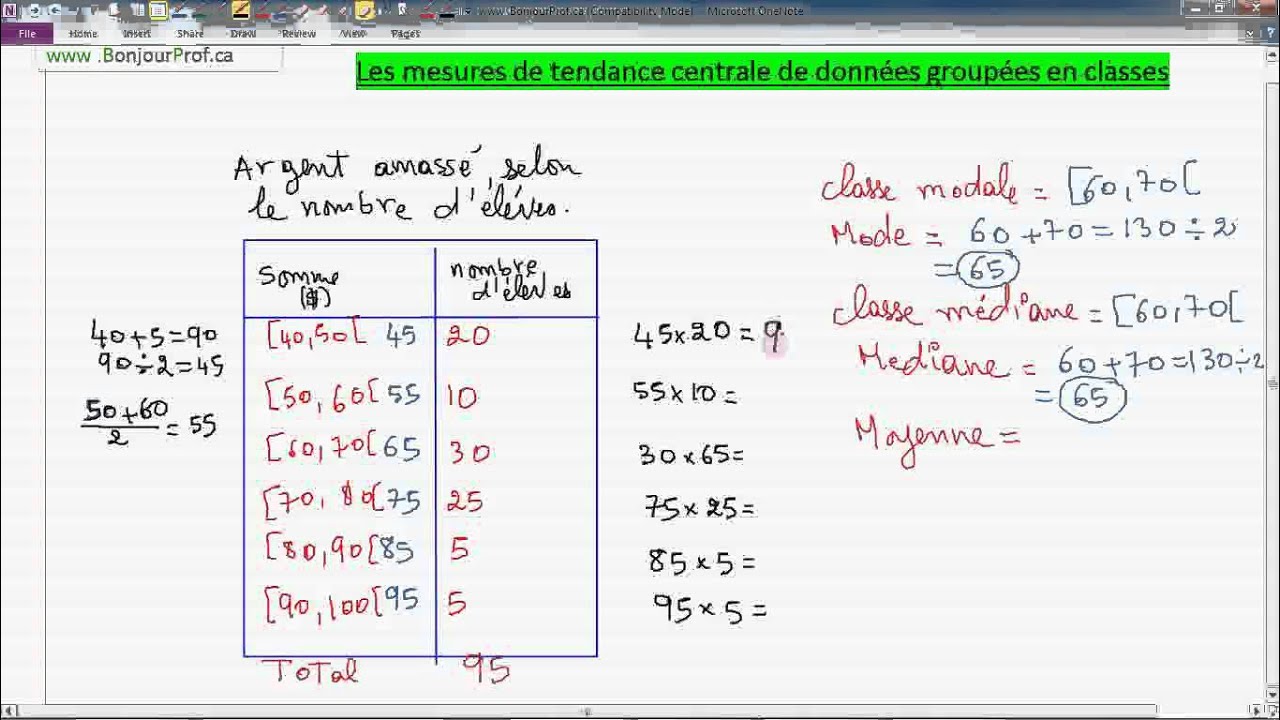 www.BonjourProf.ca (Compatibility Mode) - Microsoft OneNote
File Home Insert Share Draw Review View Pages
www .BonjourProf.ca
Les mesures de tendance centrale de données groupées en classes
Argent amassé, selon
le nombre d'élèves.
Somme
($)
nombre
d'élèves
[40,50[ 45 20
[50,60[ 55 10
[60,70[ 65 30
[70,80[ 75 25
[80,90[ 85 5
[90,100[ 95 5
Total 95
40+5=90
90÷2=45
50+60
2
=55
45×20=9
55×10=
30×65=
75×25=
85×5=
95×5=
classe modale = [60,70[
Mode = 60+70=130÷2
=65
classe médiane = [60,70[
Mediane = 60+70=130÷2
=65
Moyenne =